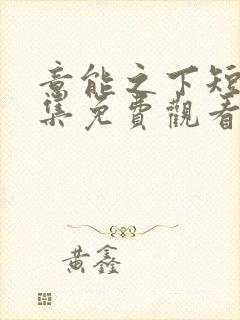 高能之下短
集免費觀看
黄鑫